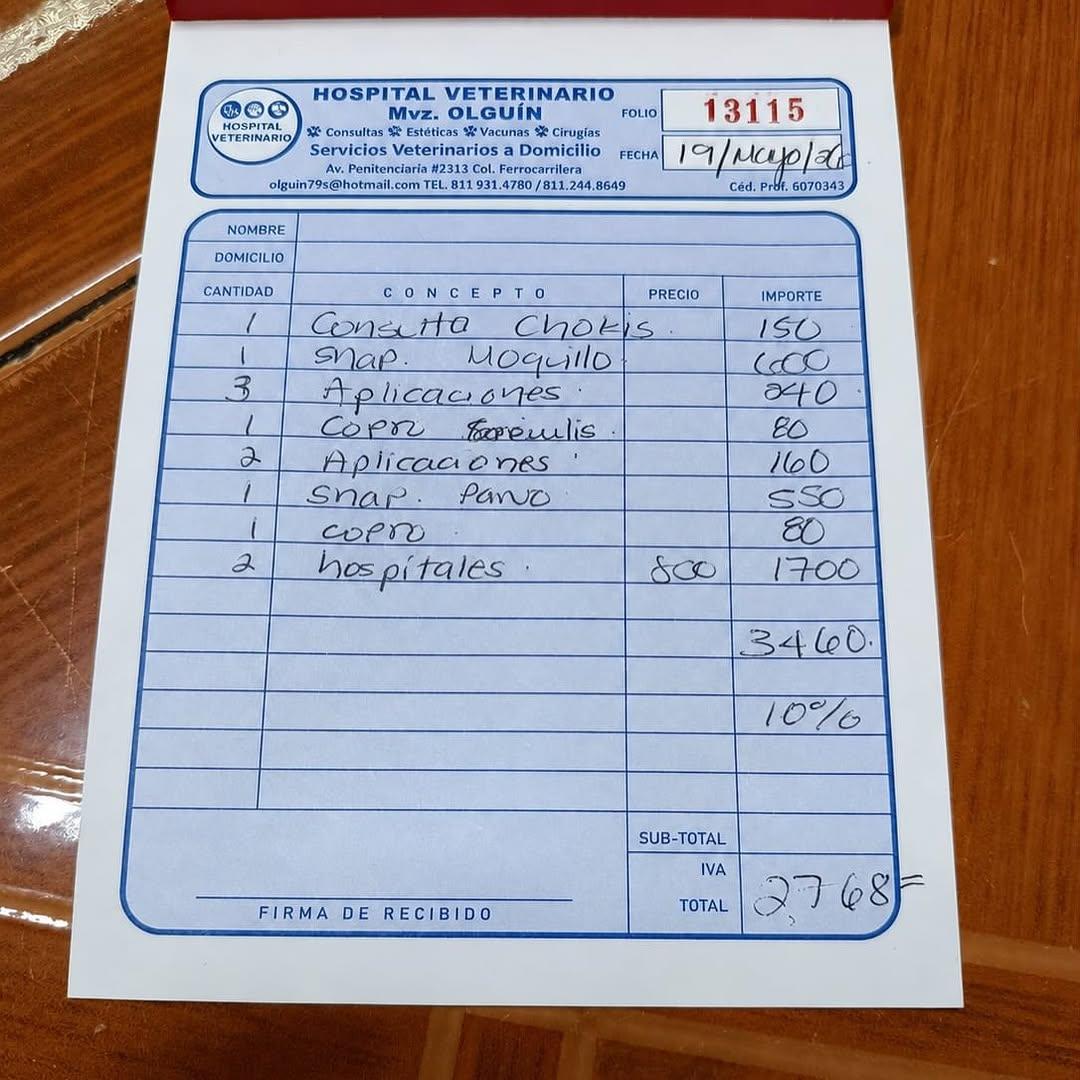 HOSPITAL VETERINARIO
HOSPITAL VETERINARIO
Mvz. OLGUÍN
Consultas Estéticas Vacunas Cirugías
Servicios Veterinarios a Domicilio
Av. Penitenciaria #2313 Col. Ferrocarrilera
olguin79s@hotmail.com TEL. 811 931.4780 / 811.244.8649
FOLIO 13115
FECHA 19/Mayo/
Céd. Prof. 6070343
NOMBRE
DOMICILIO
CANTIDAD CONCEPTO PRECIO IMPORTE
1 Consulta Chokis. 150
1 snap. Moquillo. 600
3 Aplicaciones. 240
1 copro 80
2 Aplicaciones 160
1 snap. Parvo 550
1 copro. 80
2 hospitales. 800 1700
3460.
10%
SUB-TOTAL
IVA
TOTAL 2,768=
FIRMA DE RECIBIDO